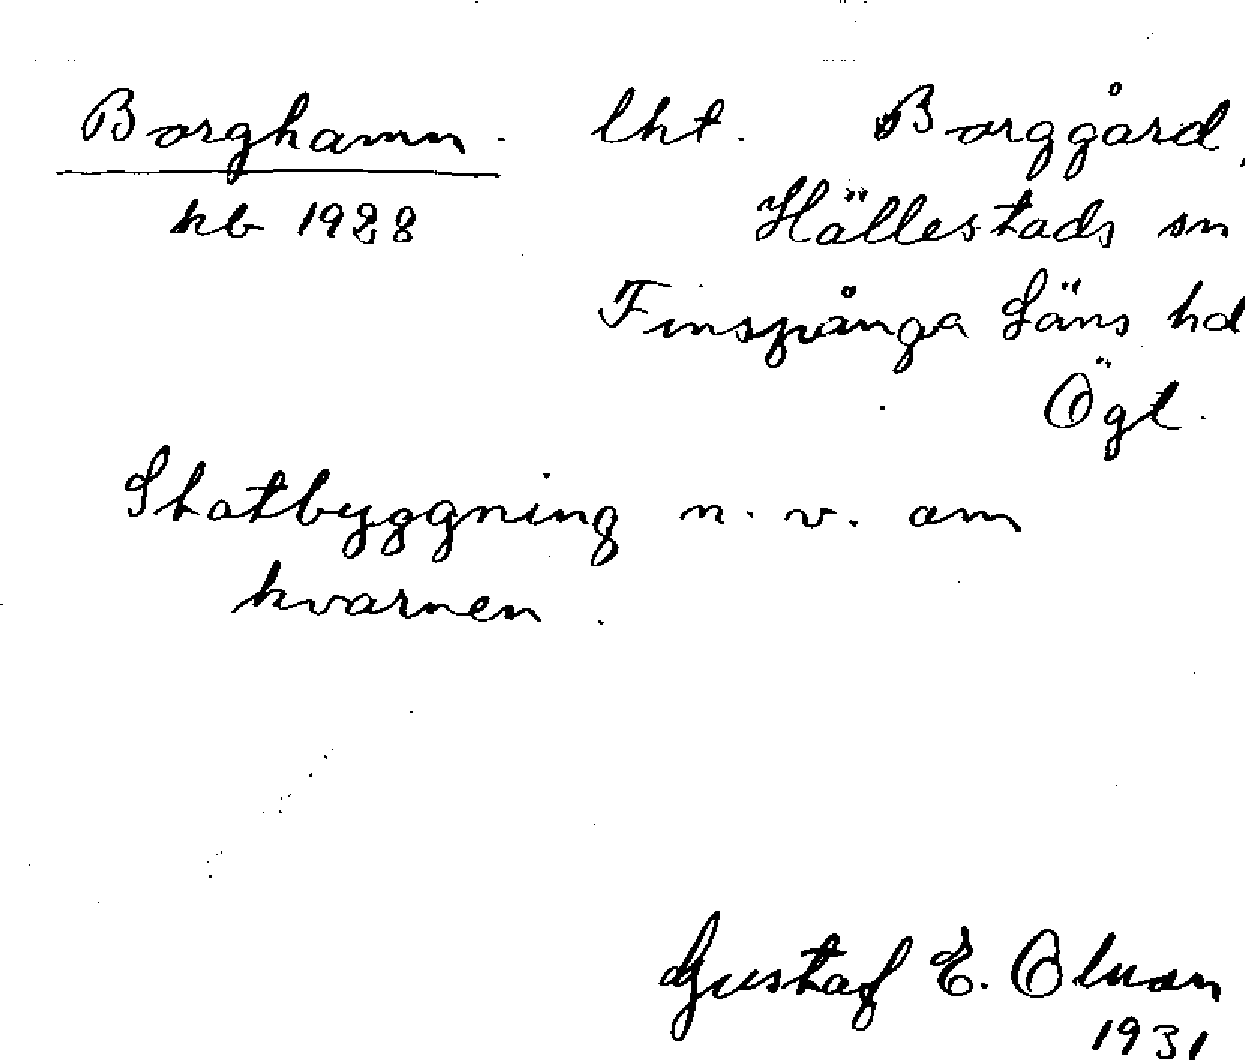 Borghamn. lht. Borggård,
kb 1928 Hällestads sn
Finspånga Läns hd
Ögl.
Statbyggning n. v. om
kvarnen.
Gustaf E.
1931